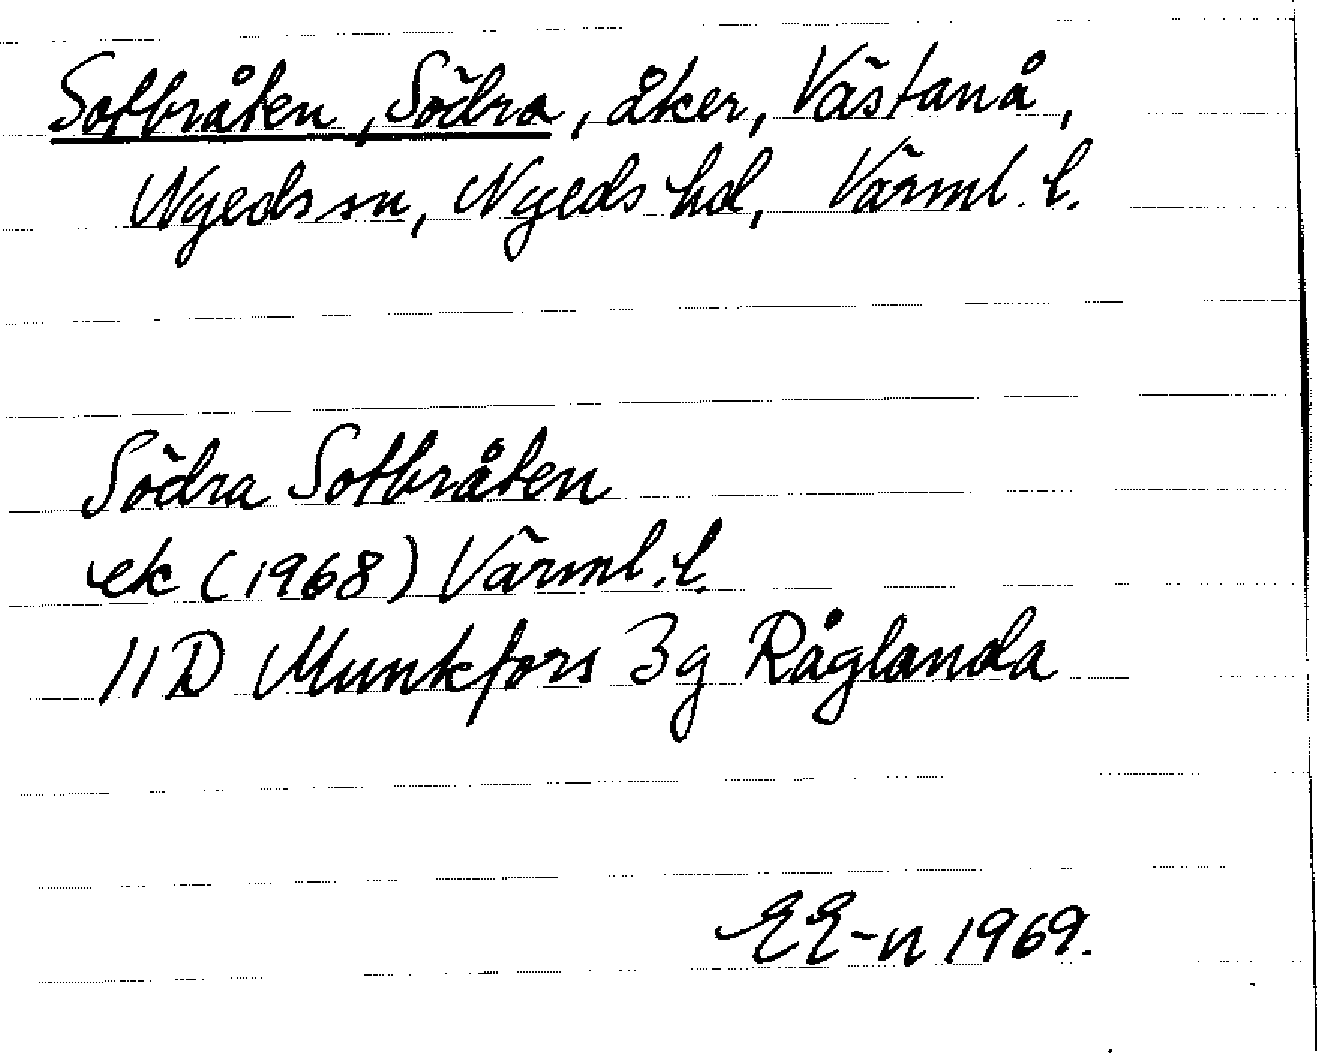 Sotbråten, Södra, åker, Västanå,
Nyeds sn, Nyeds hd, Värml. l.
Södra Sotbråten
ek (1968) Värml. l.
11D Munkfors 3g Råglanda
EE-n 1969.